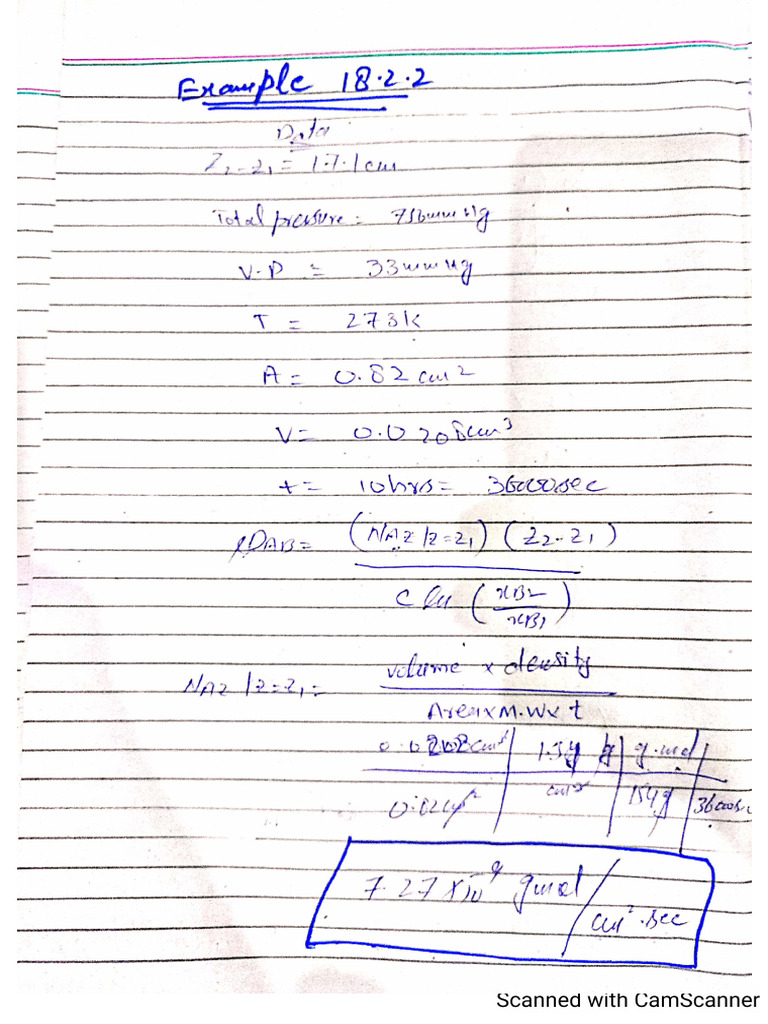 Example 18.2.2
Data
Z2-Z1 = 17.1cm
Total pressure = 755mmHg
V.P = 33mmHg
T = 273K
A = 0.82 cm2
V = 0.0208cm3
t = 10hrs = 36000sec
DAB = (NAZ|z=z1) (Z2-Z1)
C ln (xB2/xB1)
NAZ|z=z1 = volume x density
Area x M.W x t
0.0208cm3 | 1.59 g | g.mol
0.82cm2 | cm3 | 154g | 36000s
7.27 x 10-9 gmol/cm2.sec
Scanned with CamScanner